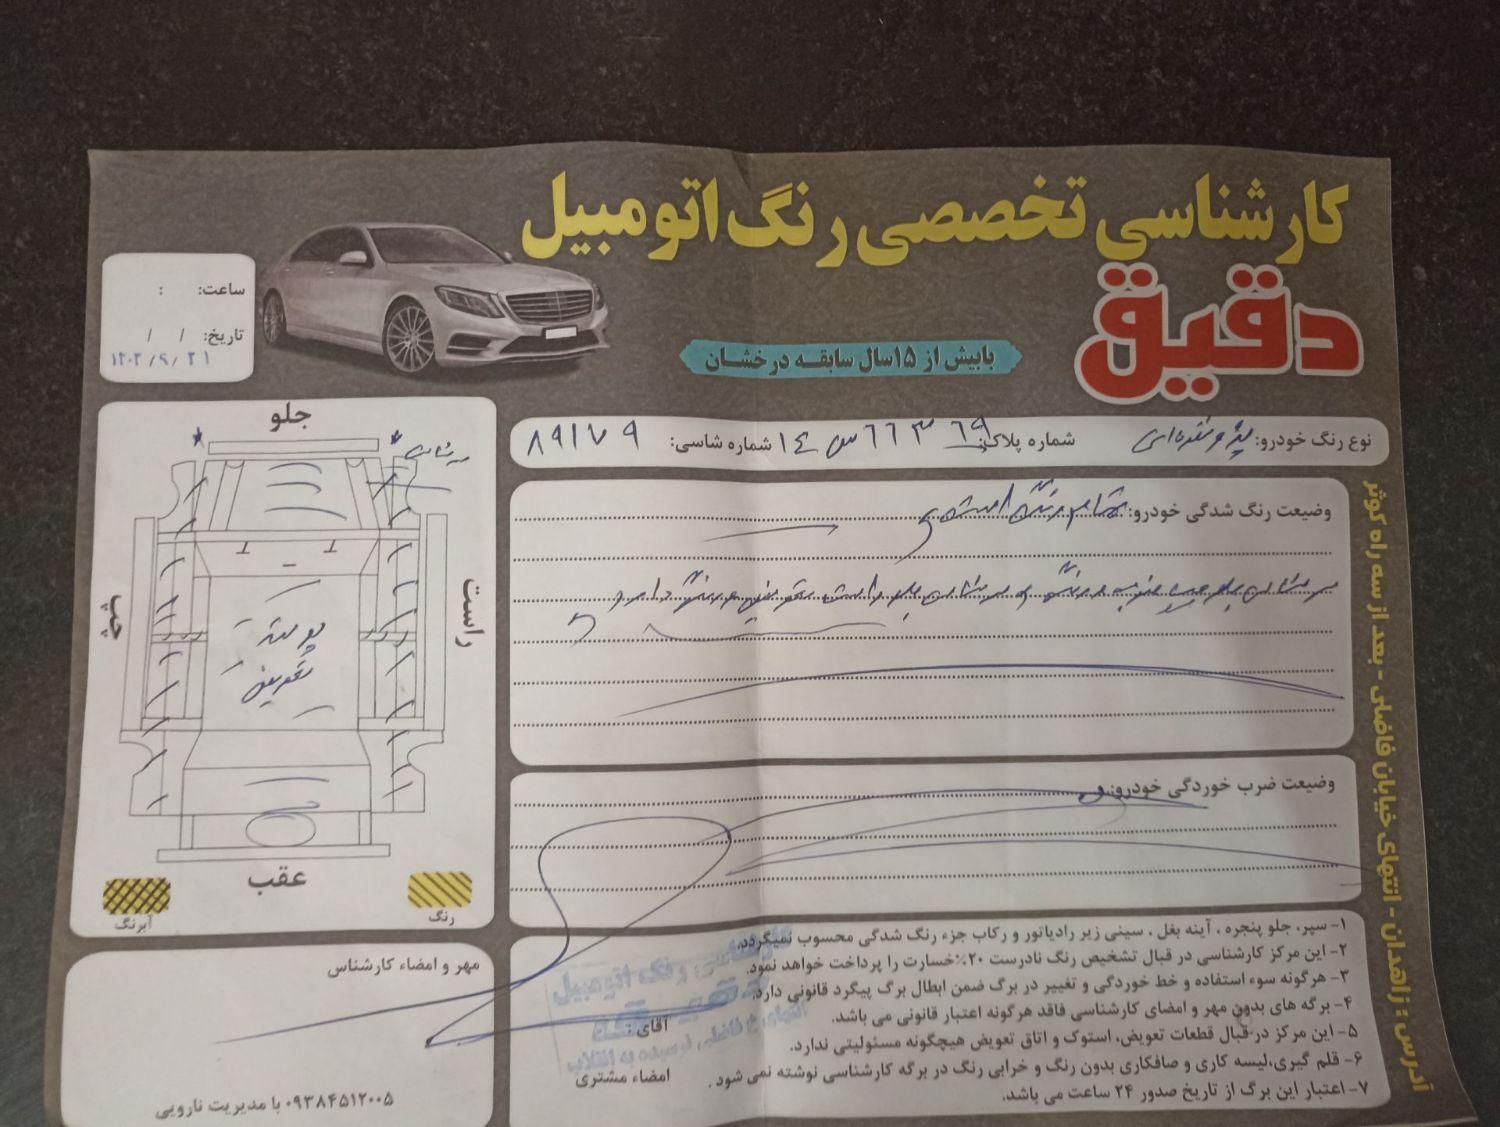 کارشناسی تخصصی رنگ اتومبیل
دقیق
بابیش از ۱۵سال سابقه درخشان
ساعت: :
تاریخ: / /
۱۴۰۲/۹/۲۱
نوع رنگ خودرو: پژو نقره‌ای شماره پلاک: ۶۹ ۶۶۳ س ۱۴ شماره شاسی: ۸۹۱۷۹
وضیعت رنگ شدگی خودرو: تمام رنگ
جلو
راست
چپ
تعویض
عقب
رنگ
آبرنگ
وضیعت ضرب خوردگی خودرو:
۱- سپر، جلو پنجره ، آینه بغل ، سینی زیر رادیاتور و رکاب جزء رنگ شدگی محسوب نمیگردد.
۲- این مرکز کارشناسی در قبال تشخیص رنگ نادرست ۲۰٪خسارت را پرداخت خواهد نمود.
۳- هرگونه سوء استفاده و خط خوردگی و تغییر در برگ ضمن ابطال برگ پیگرد قانونی دارد.
۴- برگه های بدون مهر و امضای کارشناسی فاقد هرگونه اعتبار قانونی می باشد.
۵- این مرکز در قبال قطعات تعویض، استوک و اتاق تعویض هیچگونه مسئولیتی ندارد.
۶- قلم گیری،لیسه کاری و صافکاری بدون رنگ و خرابی رنگ در برگه کارشناسی نوشته نمی شود .
۷- اعتبار این برگ از تاریخ صدور ۲۴ ساعت می باشد.
آقای :
امضاء مشتری
مهر و امضاء کارشناس
۰۹۳۸۴۵۱۲۰۰۵ با مدیریت نارویی
آدرس : زاهدان - انتهای خیابان فاضلی - بعد از سه راه کوثر